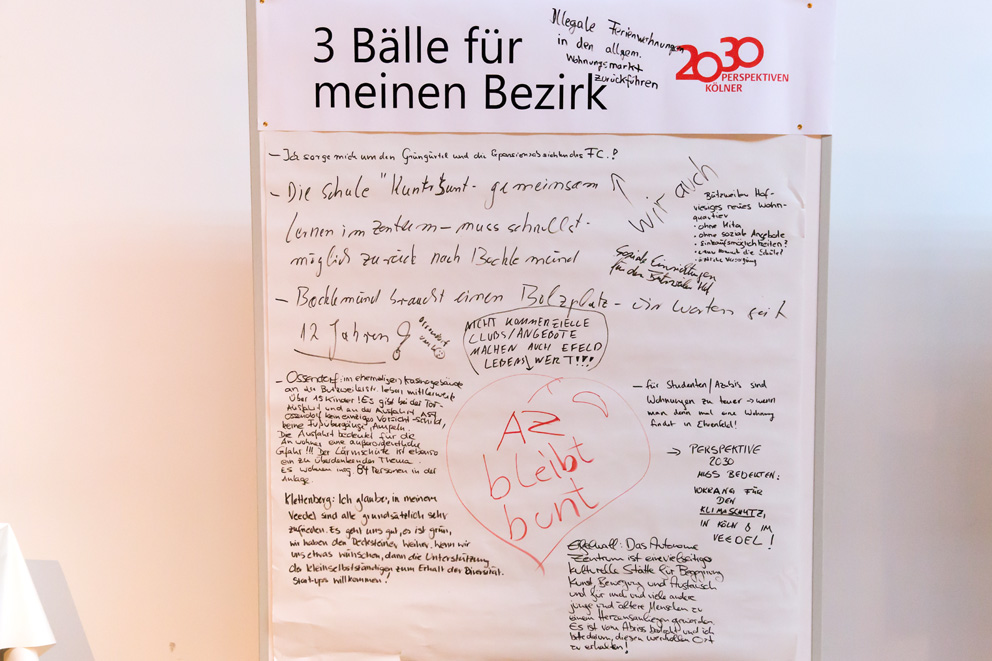 3 Bälle für
meinen Bezirk
Illegale Ferienwohnungen
in den allgem.
Wohnungsmarkt
zurückführen
2030
PERSPEKTIVEN
KÖLNER
– Ich sorge mich um den Grüngürtel und die Expansionsabsichten des FC.!
wir auch
– Die Schule "Kunterbunt - gemeinsam
lernen im Zentrum – muss schnellst-
möglich zurück nach Bocklemünd
Bützweiler Hof-
riesiges neues Wohn-
quartier
• ohne Kita
• ohne soziale Angebote
• Einkaufsmöglichkeiten?
Soziale Einrichtungen
für den Hof
– Bocklemünd braucht einen Bolzplatz – wir warten seit
12 Jahren
NICHT KOMMERZIELLE
CLUBS/ANGEBOTE
MACHEN AUCH EFELD
LEBENSWERT!!!!
– Ossendorf: im ehemaligen Kasinogebäude
an der Butzweilerstr. leben mittlerweile
über 15 Kinder! Es gibt bei der Tor-
Ausfahrt und an der Ausfahrt
Ossendorf kein einziges Vorsicht-Schild,
keine Fußübergänge, Ampeln.
Die Ausfahrt bedeutet für die
Anwohner eine außerordentliche
Gefahr!!! Der Lärmschutz ist ebenso
ein zu überdenkendes Thema.
Es wohnen insg. 84 Personen in der
Anlage.
– für Studenten/Azubis sind
Wohnungen zu teuer → wenn
man denn mal eine Wohnung
findet in Ehrenfeld!
AZ
bleibt
bunt
→ PERSPEKTIVE
2030
MUSS BEDEUTEN:
VORRANG FÜR
DEN
KLIMASCHUTZ,
IN KÖLN & IM
VEEDEL!
Klettenberg: Ich glaube, in meinem
Veedel sind alle grundsätzlich sehr
zufrieden. Es geht uns gut, es ist grün,
wir haben den Decksteiner Weiher. Wenn wir
uns etwas wünschen, dann die Unterstützung
der Kleinselbstständigen zum Erhalt der Diversität.
Start-ups willkommen!
Eifelwall: Das Autonome
Zentrum ist eine vielseitige
kulturelle Stätte für Begegnung
Kunst, Bewegung und Austausch
und für mich und viele andere
junge und ältere Menschen zu
einem Herzensanliegen geworden.
Es ist vom Abriss bedroht und ich
bitte darum, diesen wertvollen Ort
zu erhalten!